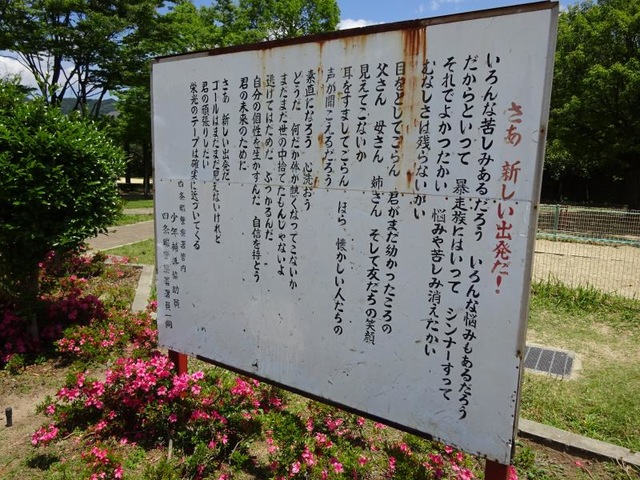 さあ 新しい出発だ!
いろんな苦しみあるだろう いろんな悩みもあるだろう
だからといって 暴走族にはいって シンナーすって
それでよかったかい 悩みや苦しみ消えたかい
むなしさは残らないかい
目をとじてごらん 君がまだ幼かったころの
父さん 母さん 姉さん そして友だちの笑顔
見えてこないか
耳をすましてごらん ほら、懐かしい人たちの
声が聞こえるだろう
素直になろう 心洗おう
どうだ 何だか体が熱くなってこないか
まだまだ世の中捨てたもんじゃないよ
逃げてはだめだ ぶつかるんだ
自分の個性を生かすんだ 自信を持とう
君の未来のために
さあ 新しい出発だ、
ゴールはまだまだ見えないけれど
君の頑張りしだい
栄光のテープは確実に近づいてくる
四条畷警察署管内
少年補導協助員
四条畷警察署署員一同